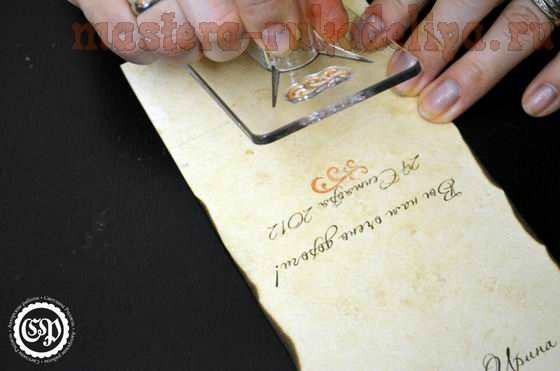 mastera-rukodeliya.ru
Ирина
Вы нам очень дороги!
29 Сентября 2012
СР